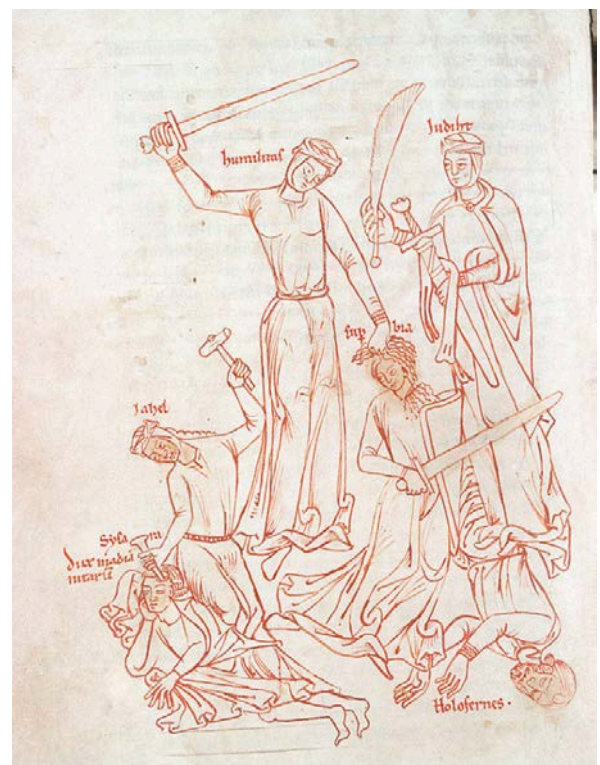 humilitas
Judiht
sup bia
Jahel
Sysa ra
dux madia
nitarū
Holofernes.